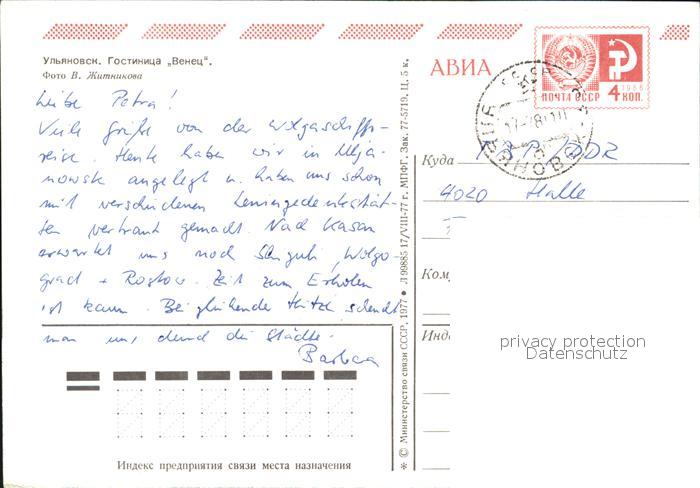 Ульяновск. Гостиница „Венец".
Фото В. Житникова
АВИА
ПОЧТА СССР 4 КОП.
1966
Liebe Petra!
Viele Grüße von der Wolgaschiffs-
reise. Heute haben wir in Ulja-
nowsk angelegt u. haben uns schon
mit verschiedenen Leningedenkstät-
ten vertraut gemacht. Nach Kasan
erwartet uns noch Shiguli, Wolgo-
grad + Rostow. Zeit zum Erholen
ist kaum. Bei glühender Hitze scheucht
man uns durch die Städte.
Barbara
Куда
DDR
4020 Halle
Ком
Инде
privacy protection
Datenschutz
Индекс предприятия связи места назначения
* © Министерство связи СССР, 1977 • Л 99885 17/VIII-77 г., МПФГ. Зак. 77-5719. Ц. 5 к.